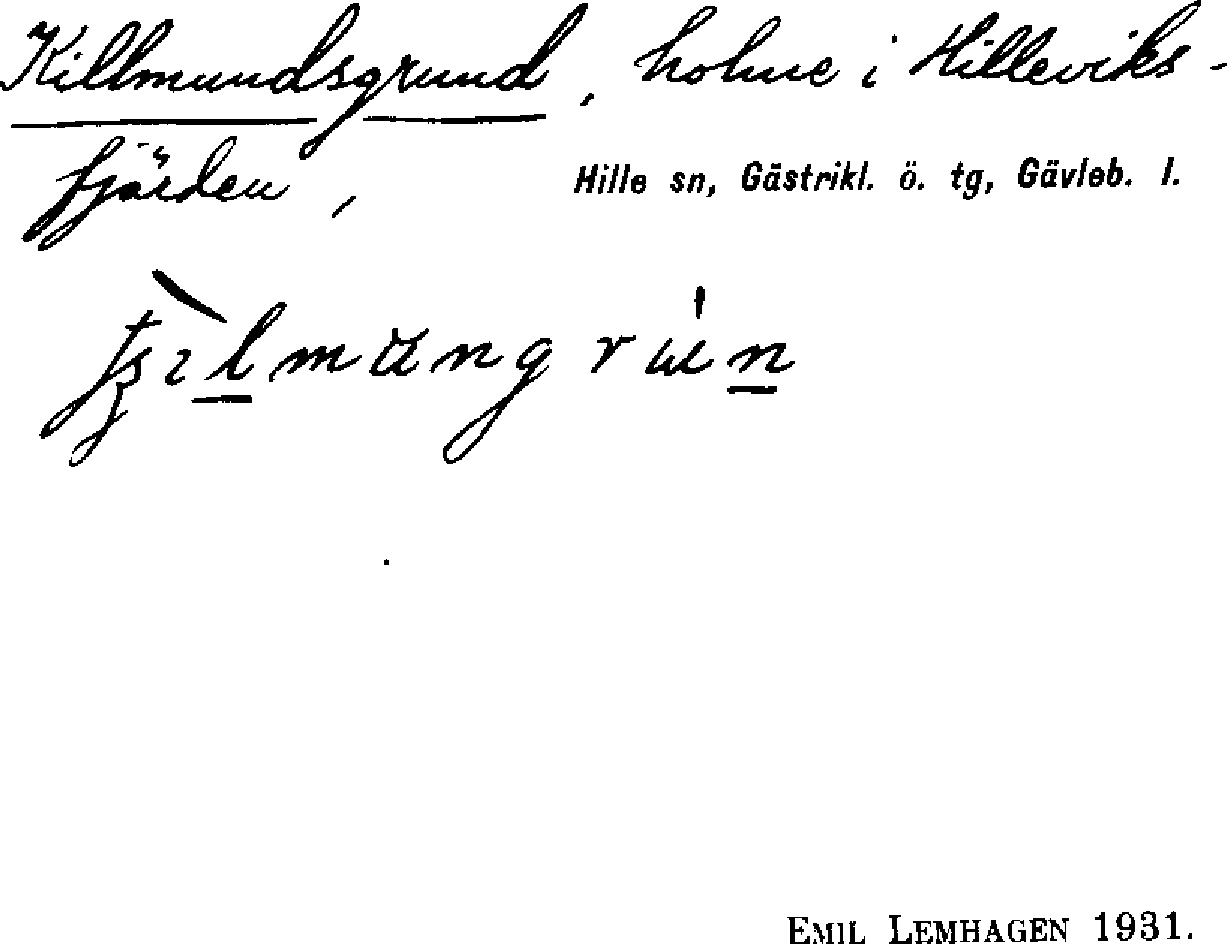 Killmundsgrund, holme i Hilleviks-
fjärden,
Hille sn, Gästrikl. ö. tg, Gävleb. l.
EMIL LEMHAGEN 1931.